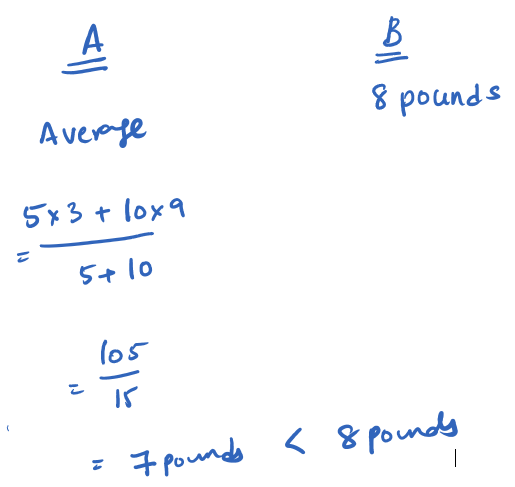 A
B
8 pounds
Average
= 5x3 + 10x9
5+10
= 105
15
= 7 pounds < 8 pounds